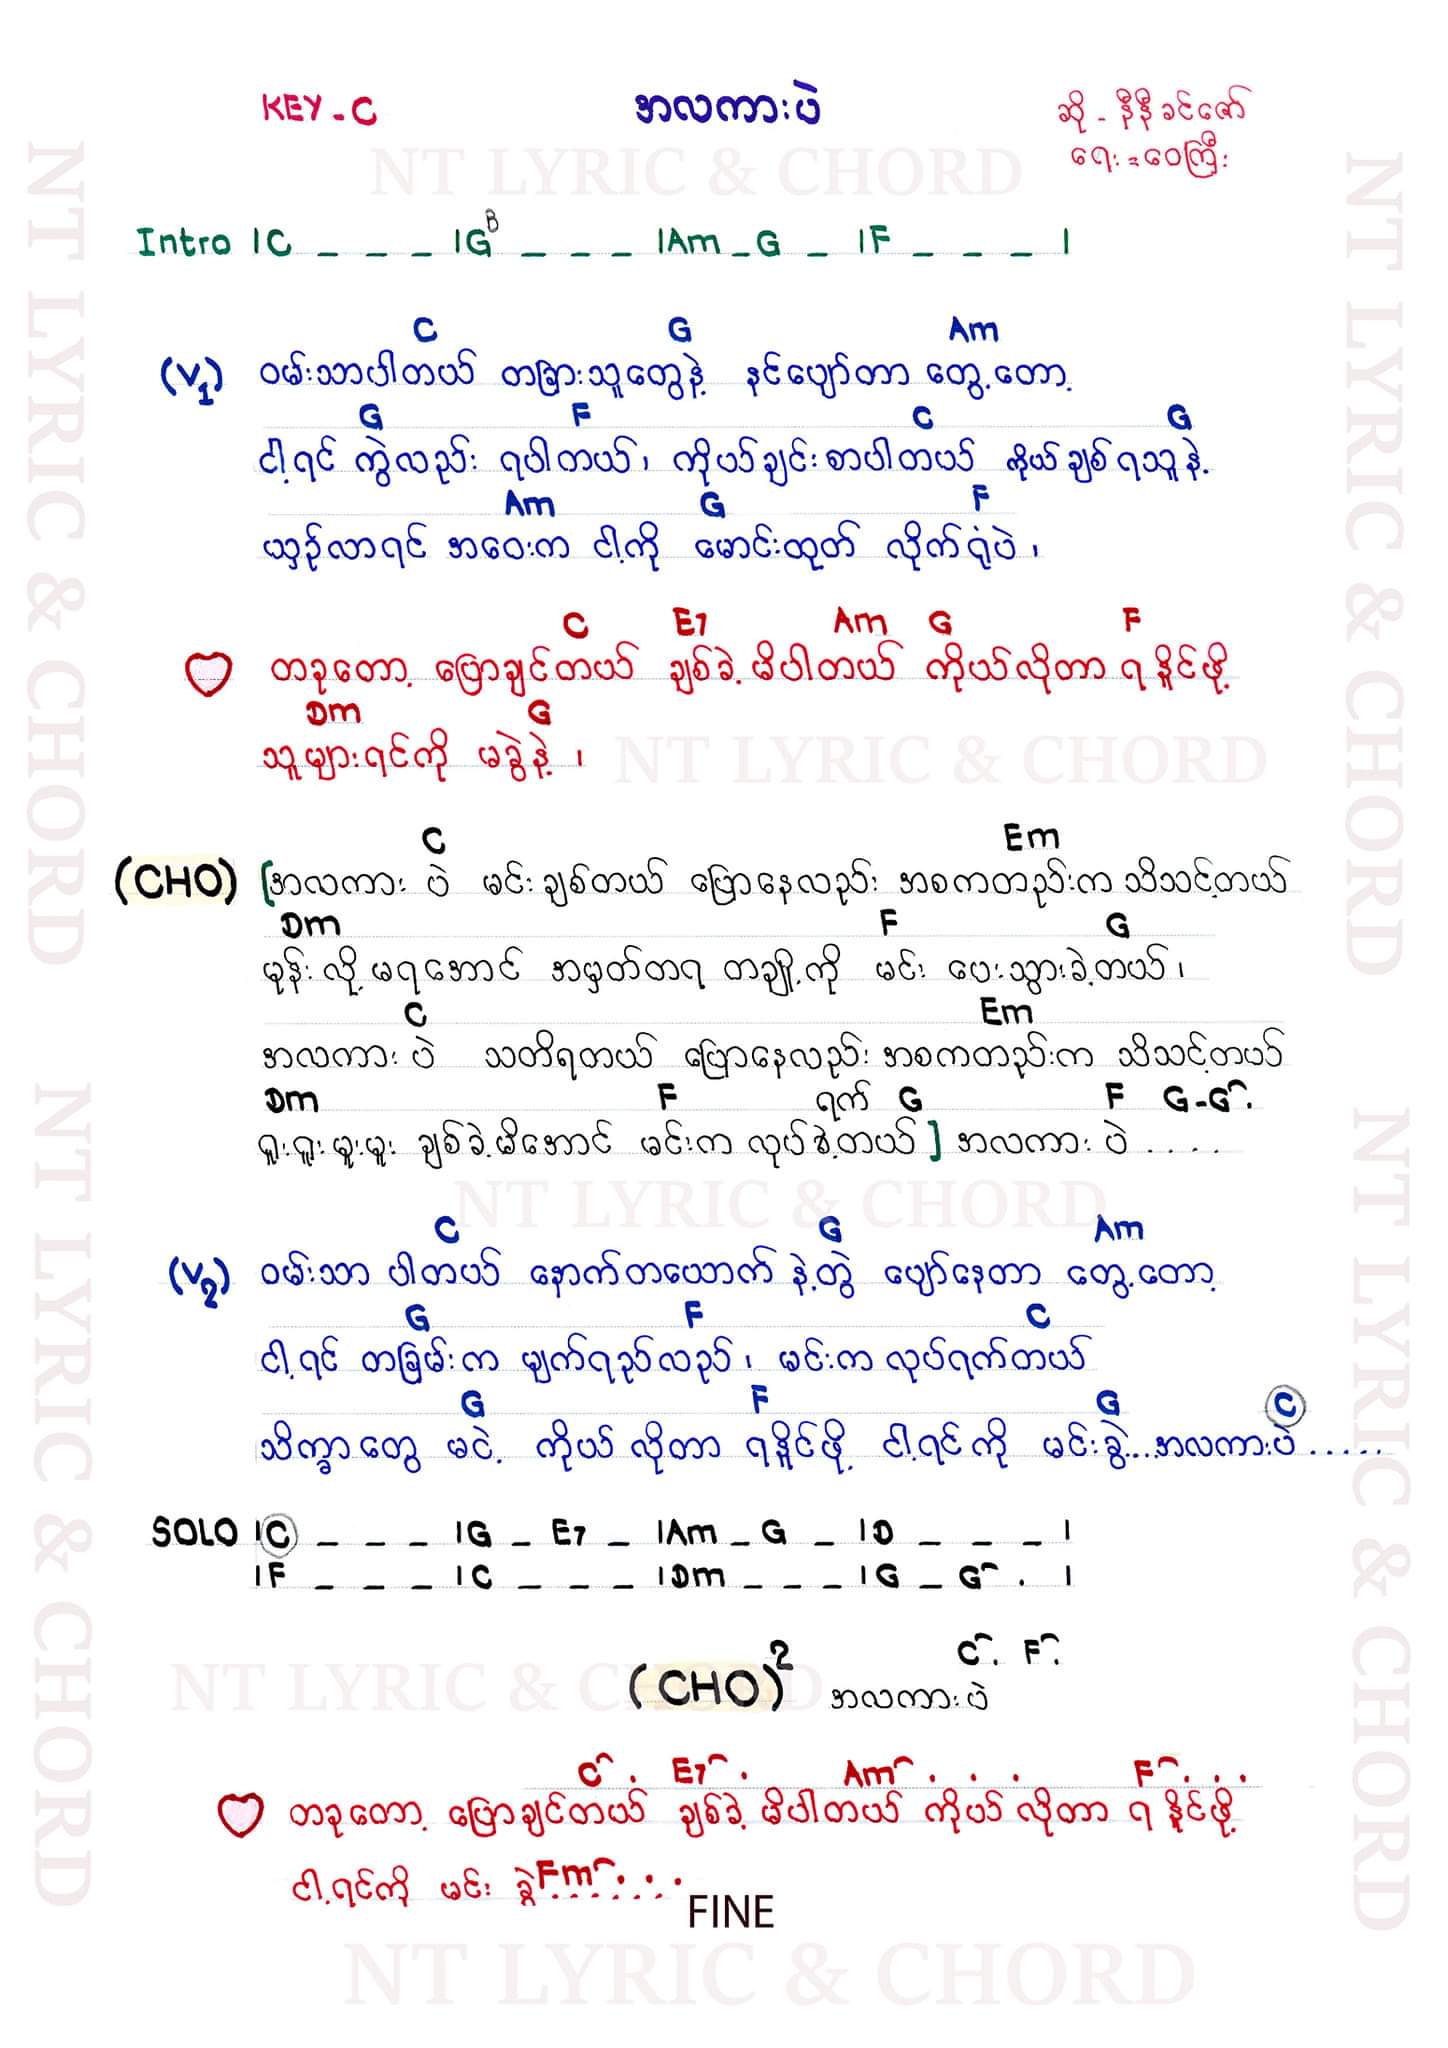 KEY - C အလကားပဲ ဆို - နီနီခင်ဇော်
ရေး = ဝေကြီး
NT LYRIC & CHORD
Intro |C _ _ _ |G B _ _ _ |Am _ G _ |F _ _ _ |
C G Am
(V1) ဝမ်းသာပါတယ် တခြားသူတွေနဲ့ နင်ပျော်တာ တွေ့တော့
G F C G
ငါ့ရင် ကွဲလည်း ရပါတယ်၊ ကိုယ်ချင်းစာပါတယ် ကိုယ်ချစ်ရသူနဲ့
Am G F
ယှဉ်လာရင် အဝေးက ငါ့ကို မောင်းထုတ် လိုက်ရုံပဲ၊
C E7 Am G F
တခုတော့ ပြောချင်တယ် ချစ်ခဲ့မိပါတယ် ကိုယ်လိုတာ ရနိုင်ဖို့
Dm G
သူများရင်ကို မခွဲနဲ့၊
NT LYRIC & CHORD
C Em
(CHO) [အလကား ပဲ မင်းချစ်တယ် ပြောနေလည်း အစကတည်းက သိသင့်တယ်
Dm F G
မုန်းလို့မရအောင် အမှတ်တရ တချို့ကို မင်း ပေးသွားခဲ့တယ်၊
C Em
အလကား ပဲ သတိရတယ် ပြောနေလည်း အစကတည်းက သိသင့်တယ်
Dm F ရက် G F G-G.
ရူးရူးမူးမူး ချစ်ခဲ့မိအောင် မင်းက လုပ်ခဲ့တယ်] အလကား ပဲ ....
NT LYRIC & CHORD
C G Am
(V2) ဝမ်းသာ ပါတယ် နောက်တယောက် နဲ့တွဲ ပျော်နေတာ တွေ့တော့
G F C
ငါ့ရင် တခြမ်းက မျက်ရည်လည်၊ မင်းက လုပ်ရက်တယ်
G F G C
သိက္ခာတွေ မငဲ့ ကိုယ် လိုတာ ရနိုင်ဖို့ ငါ့ရင်ကို မင်းခွဲ...အလကားပဲ.....
SOLO |C _ _ _ |G _ E7 _ |Am _ G _ |D _ _ _ |
|F _ _ _ |C _ _ _ |Dm _ _ _ |G _ G . |
C. F.
NT LYRIC & CHORD
(CHO)2 အလကားပဲ
C . E7 . Am . . . F . . .
တခုတော့ ပြောချင်တယ် ချစ်ခဲ့မိပါတယ် ကိုယ်လိုတာ ရ နိုင်ဖို့
Fm . . .
ငါ့ရင်ကို မင်း ခွဲ.......
FINE
NT LYRIC & CHORD
NT LYRIC & CHORD
NT LYRIC & CHORD
NT LYRIC & CHORD
NT LYRIC & CHORD